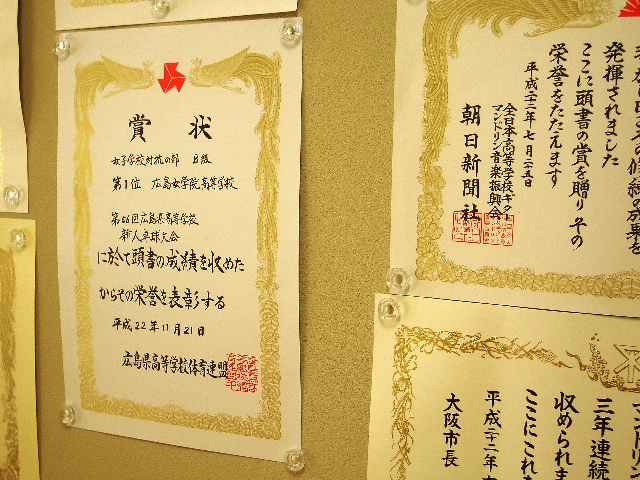 賞状
女子学校対抗の部 B級
第1位 広島女学院高等学校
第66回広島県高等学校
新人卓球大会
に於て頭書の成績を収めた
からその栄誉を表彰する
平成22年11月21日
広島県高等学校体育連盟
発揮されました
ここに頭書の賞を贈り その
栄誉をたたえます
平成二十二年七月二十五日
全日本高等学校ギター
マンドリン音楽振興会
朝日新聞社
三年連続
収められま
ここにこれを
平成二十二年
大阪市長